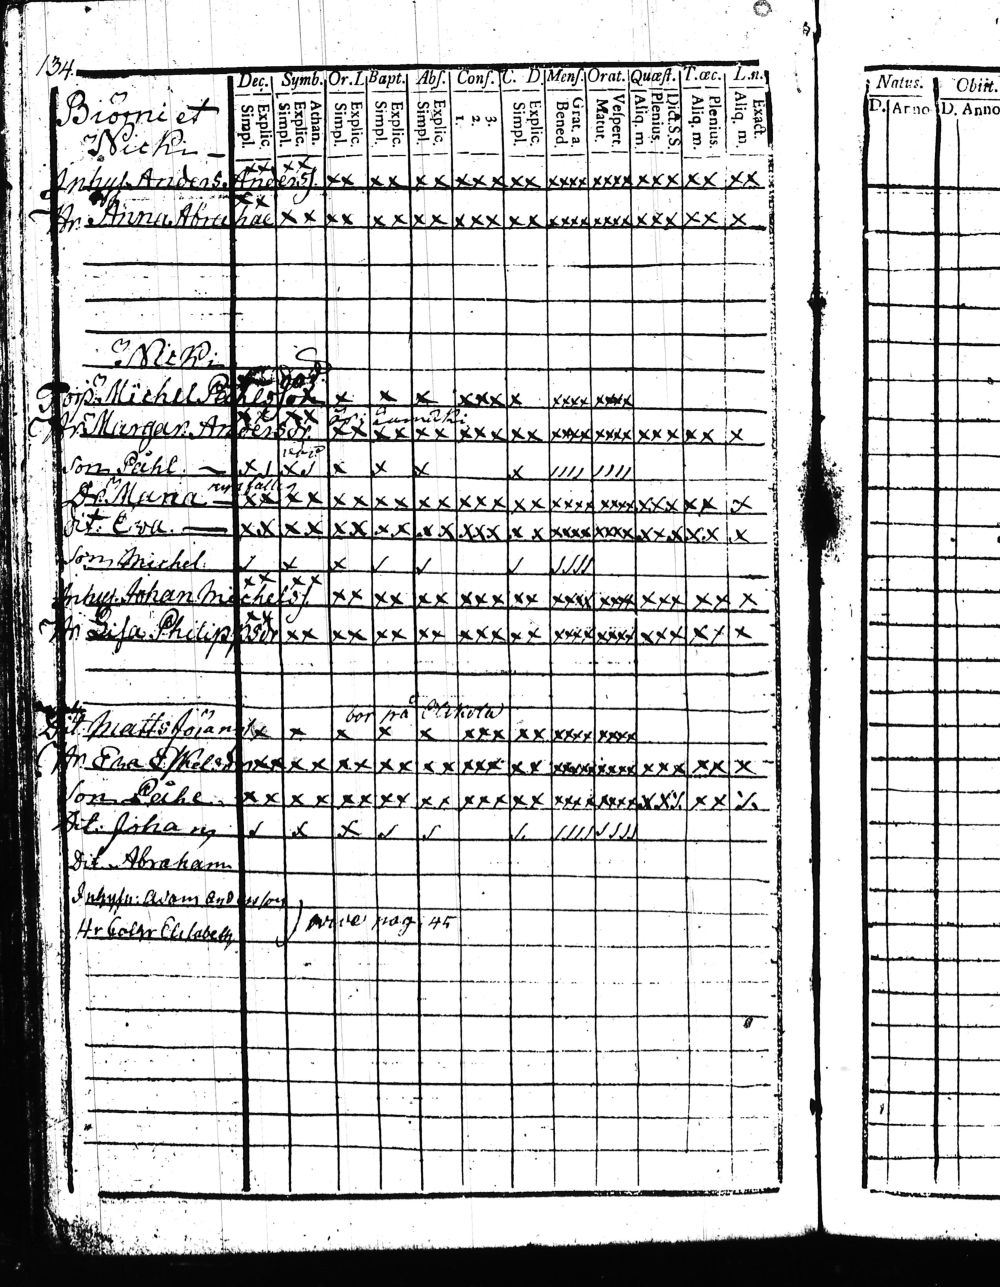 134.
Dec. Symb. Or. L Bapt. Abs. Conf. C. D. Mens. Orat. Quæst. T. œc. L. n.
Explic. Simpl. Athan. Explic. Simpl. Explic. Simpl. Explic. Simpl. Explic. Simpl. 3. 2. 1. Explic. Simpl. Grat. a. Bened. Vespert. Matut. Dict. S.S. Plenius. Aliq. m. Plenius. Aliq. m. Exact. Aliq. m.
Natus. Obiit.
D. Anno D. Anno
Biörni et
Nicki
xx xx
Inhys. Anders Andersf. xx xx xx xxx xx xxxx xxxx xxx xx xx
xx
Hr. Anna Abrahae xx xx xx xx xxx xx xxxx xxxx xxx xx x
Nicki
Michel Påhlsson x x x xxx x xxxx xxxx
xx xx
Hr. Margar. Andersdr xx xx xx xxx xx xxxx xxxx xxx xx x
Son Påhl.
Dr. Maria xx xx xx xx xx xxx xx xxxx xxxx xxx xx x
Dit. Eva. xx xx xx xx xx xxx xx xxxx xxxx xxx xx x
Son Michel
xx xx
Inhys. Johan Michelsf xx xx xx xxx xx xxxx xxxx xxx xx x
xx
Hr Lisa Philippsdr xx xx xx xx xxx xx xxxx xxxx xxx xx x
bor på
Dit. Matts Jöranss x x x x x xxx xx xxxx xxxx
Hr Eva Eskelsdr xx xx xx xx xx xxx xx xxxx xxxx xxx xx x
Son Påhl xx xx xx xx xx xxx xx xxxx xxxx
Dit. Johan
Dit Abraham
Inhysn: Adam Andersson
Hr Elisabeth pag. 45